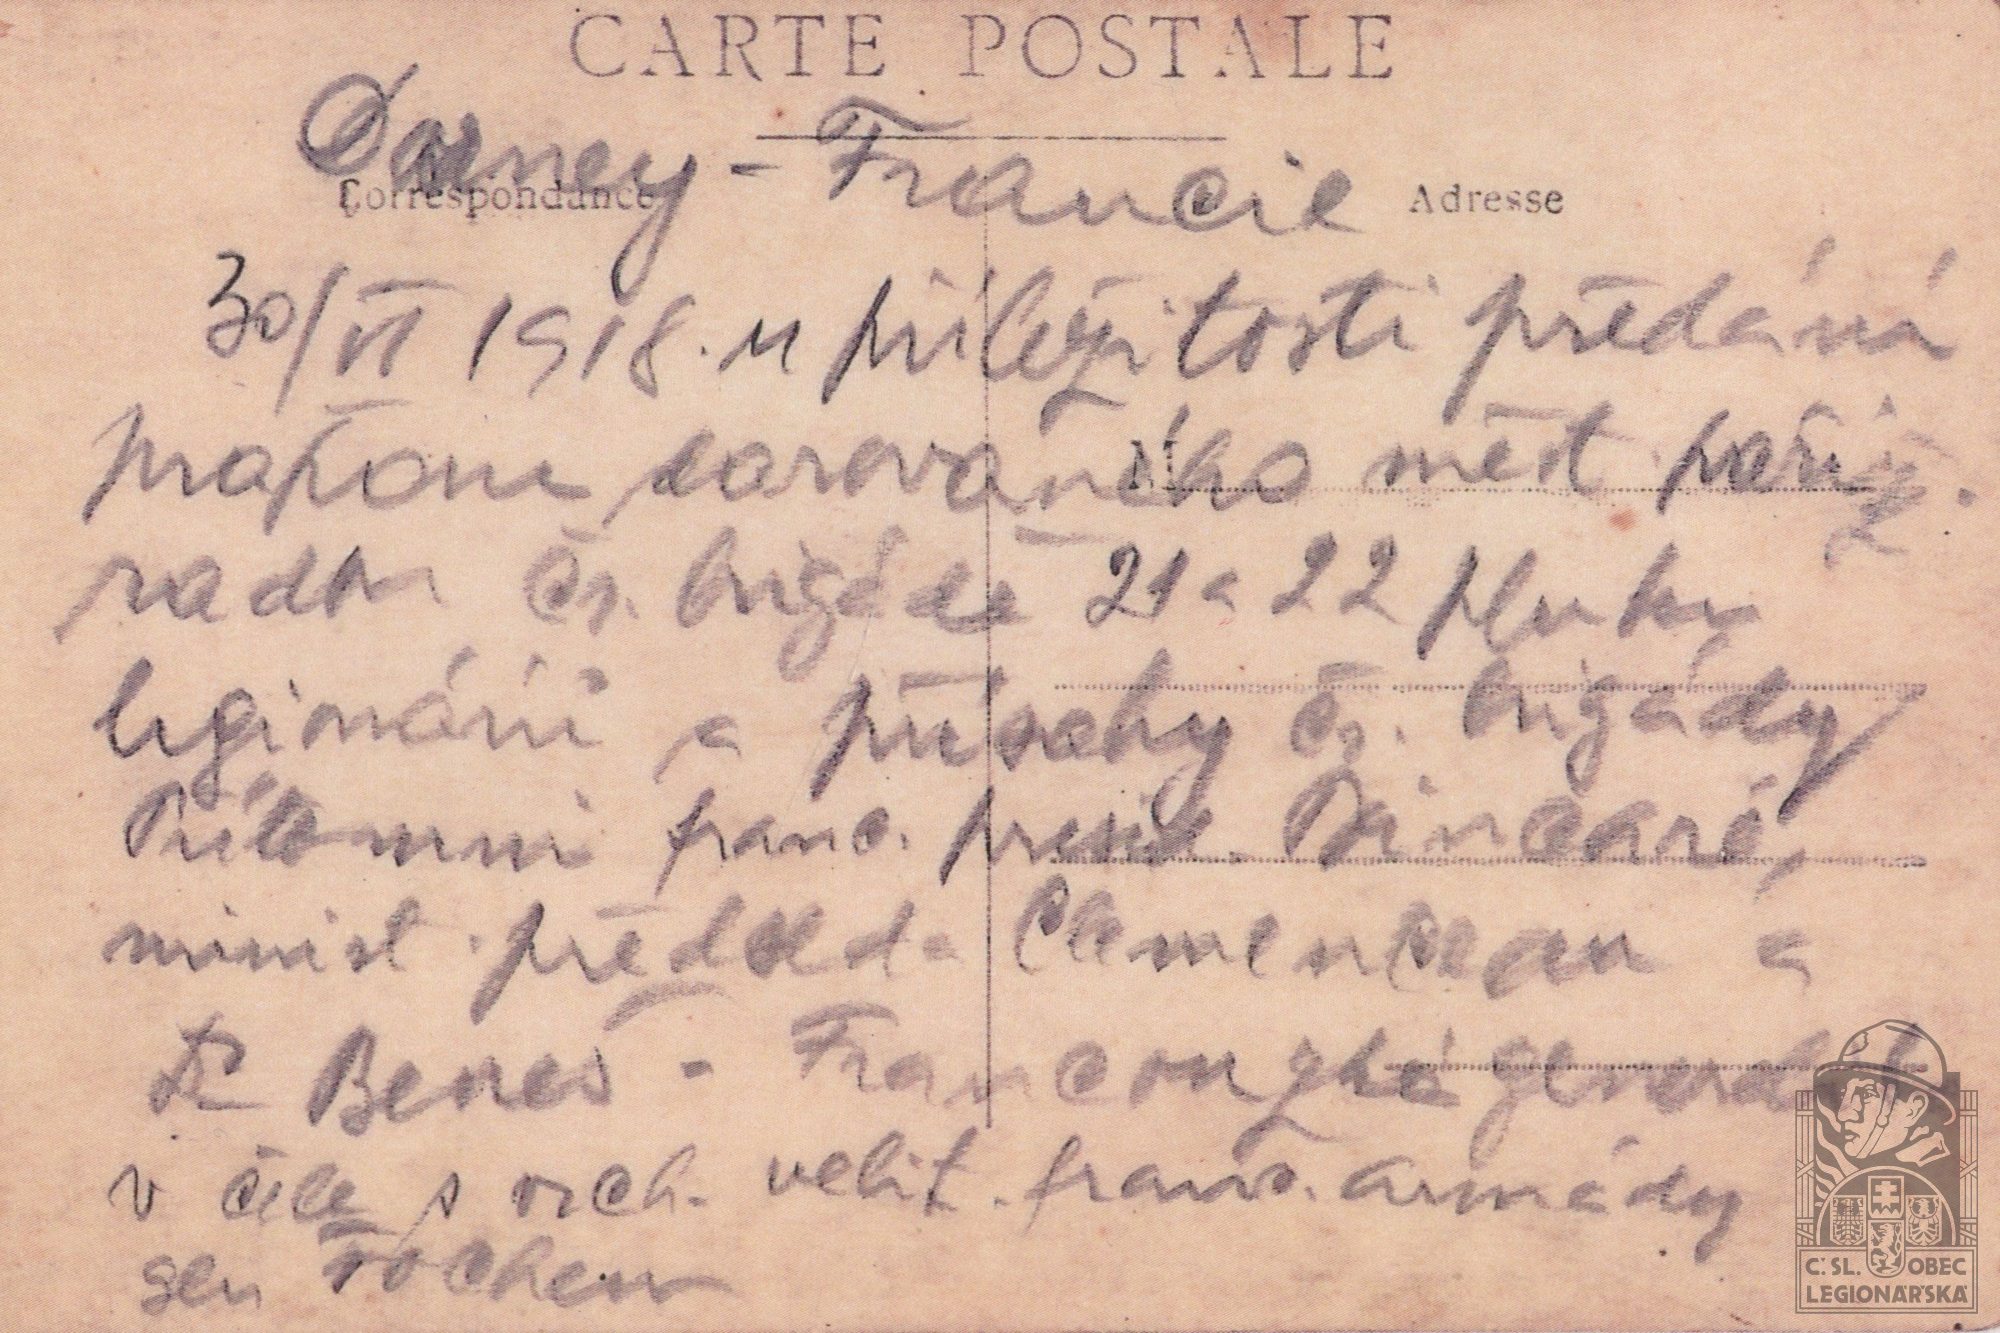 CARTE POSTALE
Darney - Francie
Correspondance
Adresse
30/VI 1918. u příležitosti předání
praporu darovaného měst. paříž.
radou čs. brigádě 21 a 22 pluku
legionářů a přísahy čs. brigády
Přítomni franc. presid. Poincaré,
minist. předseda Clemenceau a
Dr Beneš - Francouzské generál
v čele s vrch. velit. franc. armády
gen Fochem
Č.SL. OBEC
LEGIONÁŘSKÁ